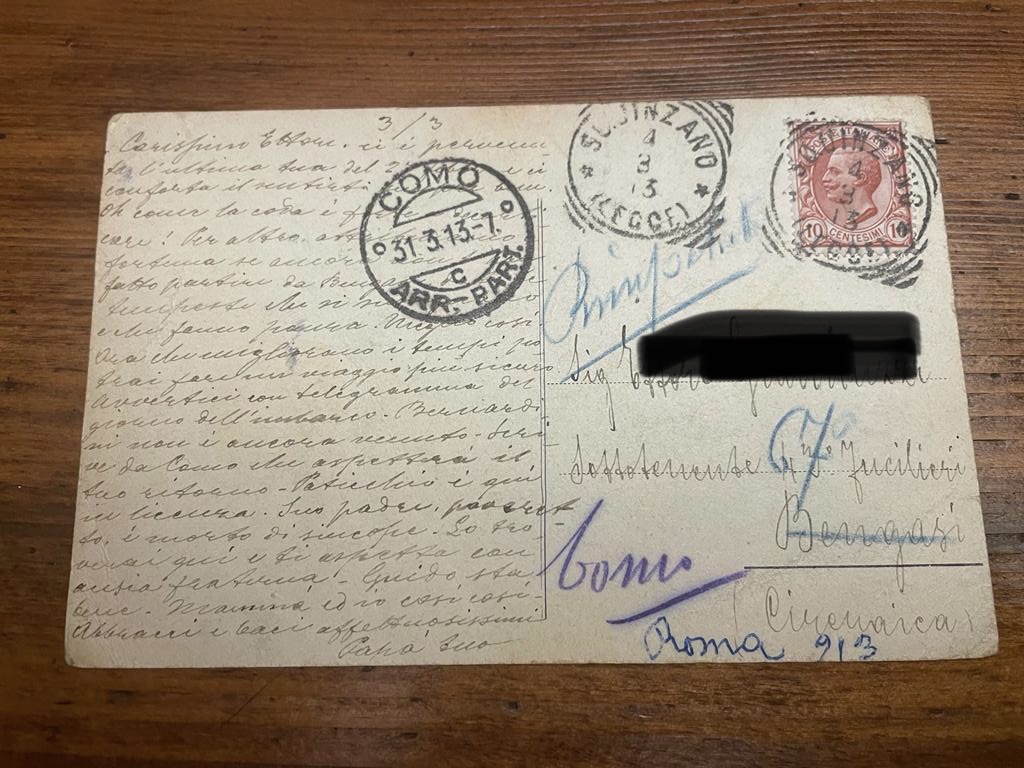 3/3
Carissimo Ettore. ci è pervenu-
ta l'ultima tua del 2
conforta il sentirti
Oh come la coda è
care! Per altro
fortuna se ancor
fatto partire da
tempeste che si
e che fanno paura. Meglio così
Ora che migliorano i tempi po
trai fare un viaggio più sicuro
Avvertici con telegramma del
giorno dell'imbarco. Bernardi
ni non è ancora venuto. Scri
ve da Como che aspetterà il
tuo ritorno. è qui
in licenza. Suo padre, poveret-
to, è morto di sincope. Lo tro
verai qui e ti aspetta con
ansia fraterna. Guido sta
bene. Mamma ed io così così.
Abbracci e baci affettuosissimi
Papà tuo
COMO
31.3.13-7
C
ARR.-PART.
SQUINZANO
4
3
13
(LECCE)
SQUINZANO
4
3
13
(LECCE)
10 CENTESIMI 10
Sig Ettore
Sottotenente 4° Fucilieri
67°
Bengasi
Cirenaica
Como
Roma 9/3